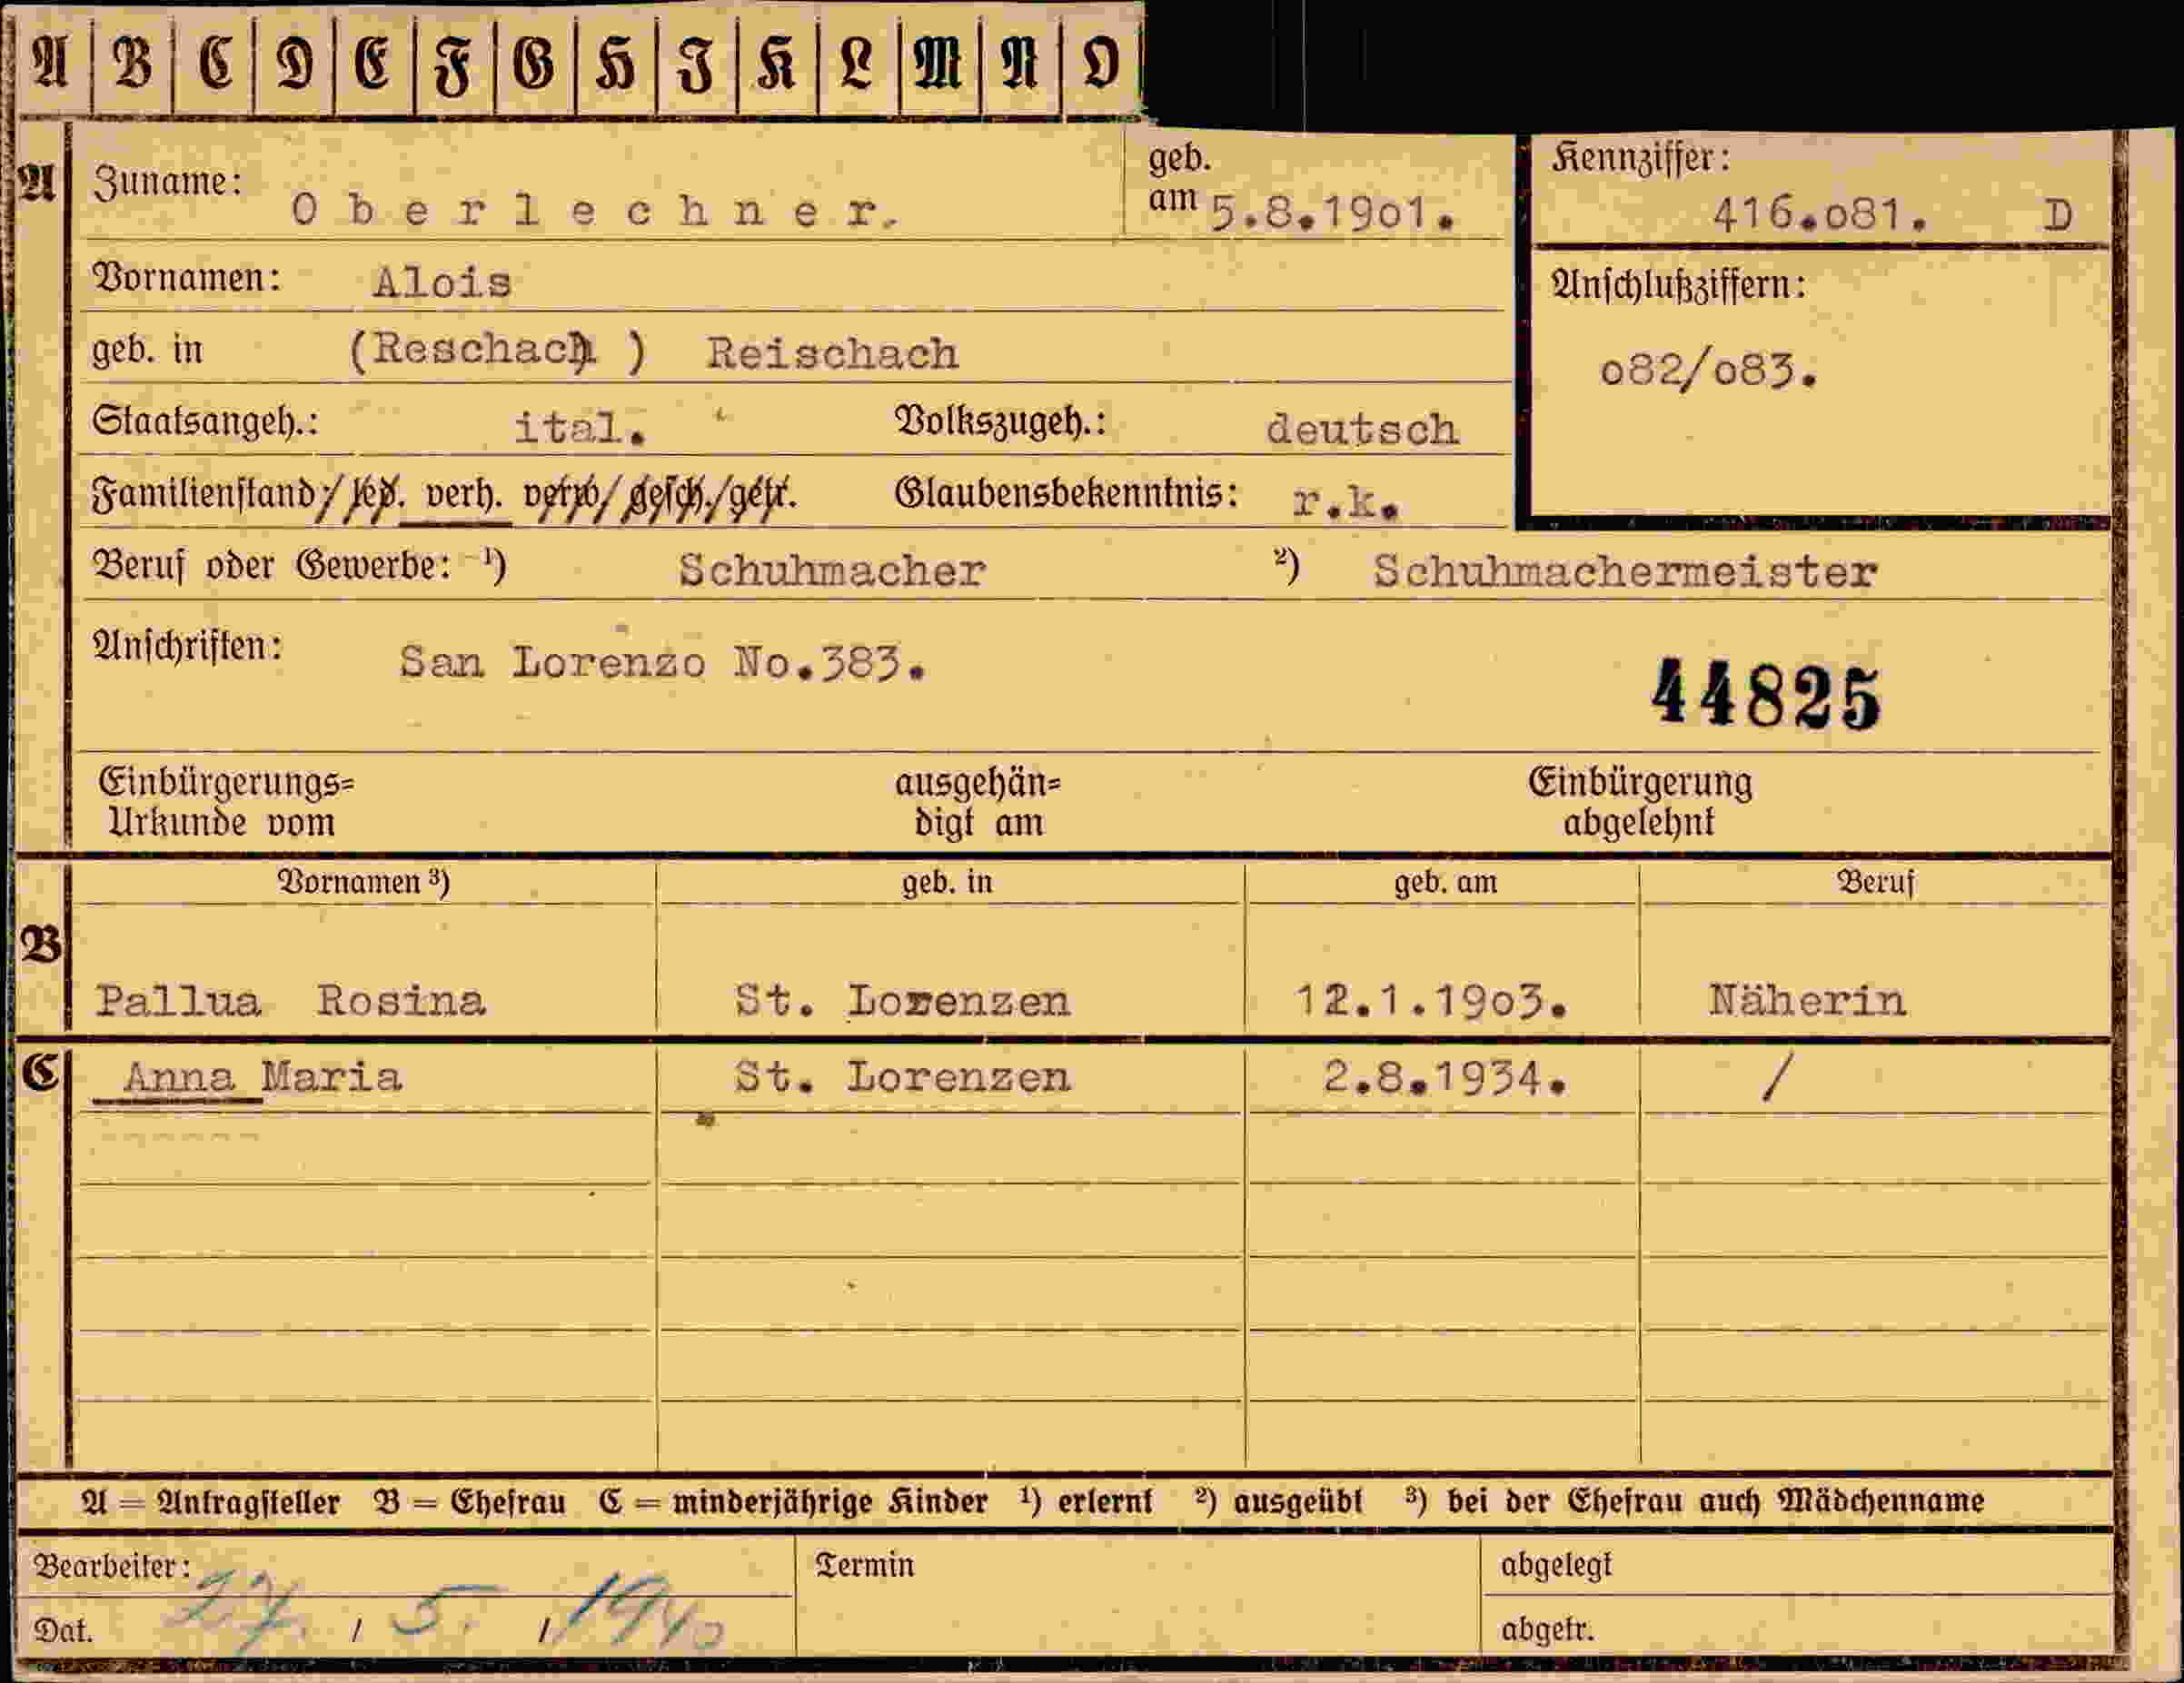 A B C D E F G H I K L M N O
A Zuname: Oberlechner. geb. am 5.8.19o1. Kennziffer: 416.o81. D
Vornamen: Alois Anschlußziffern:
geb. in (Reschach ) Reischach o82/o83.
Staatsangeh.: ital. Volkszugeh.: deutsch
Familienstand: led. verh. verw. gesch. getr. Glaubensbekenntnis: r.k.
Beruf oder Gewerbe: ¹) Schuhmacher ²) Schuhmachermeister
Anschriften: San Lorenzo No.383. 44825
Einbürgerungs= ausgehän= Einbürgerung
Urkunde vom digt am abgelehnt
Vornamen ³) geb. in geb. am Beruf
B
Pallua Rosina St. Lorenzen 12.1.19o3. Näherin
C Anna Maria St. Lorenzen 2.8.1934. /
A = Antragsteller B = Ehefrau C = minderjährige Kinder ¹) erlernt ²) ausgeübt ³) bei der Ehefrau auch Mädchenname
Bearbeiter: Termin abgelegt
Dat. 27. / 5. / 1940 abgetr.